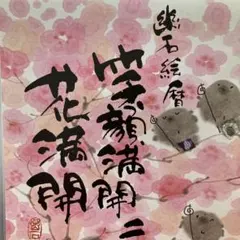 樂石絵暦
笑顔満開
二
花満開